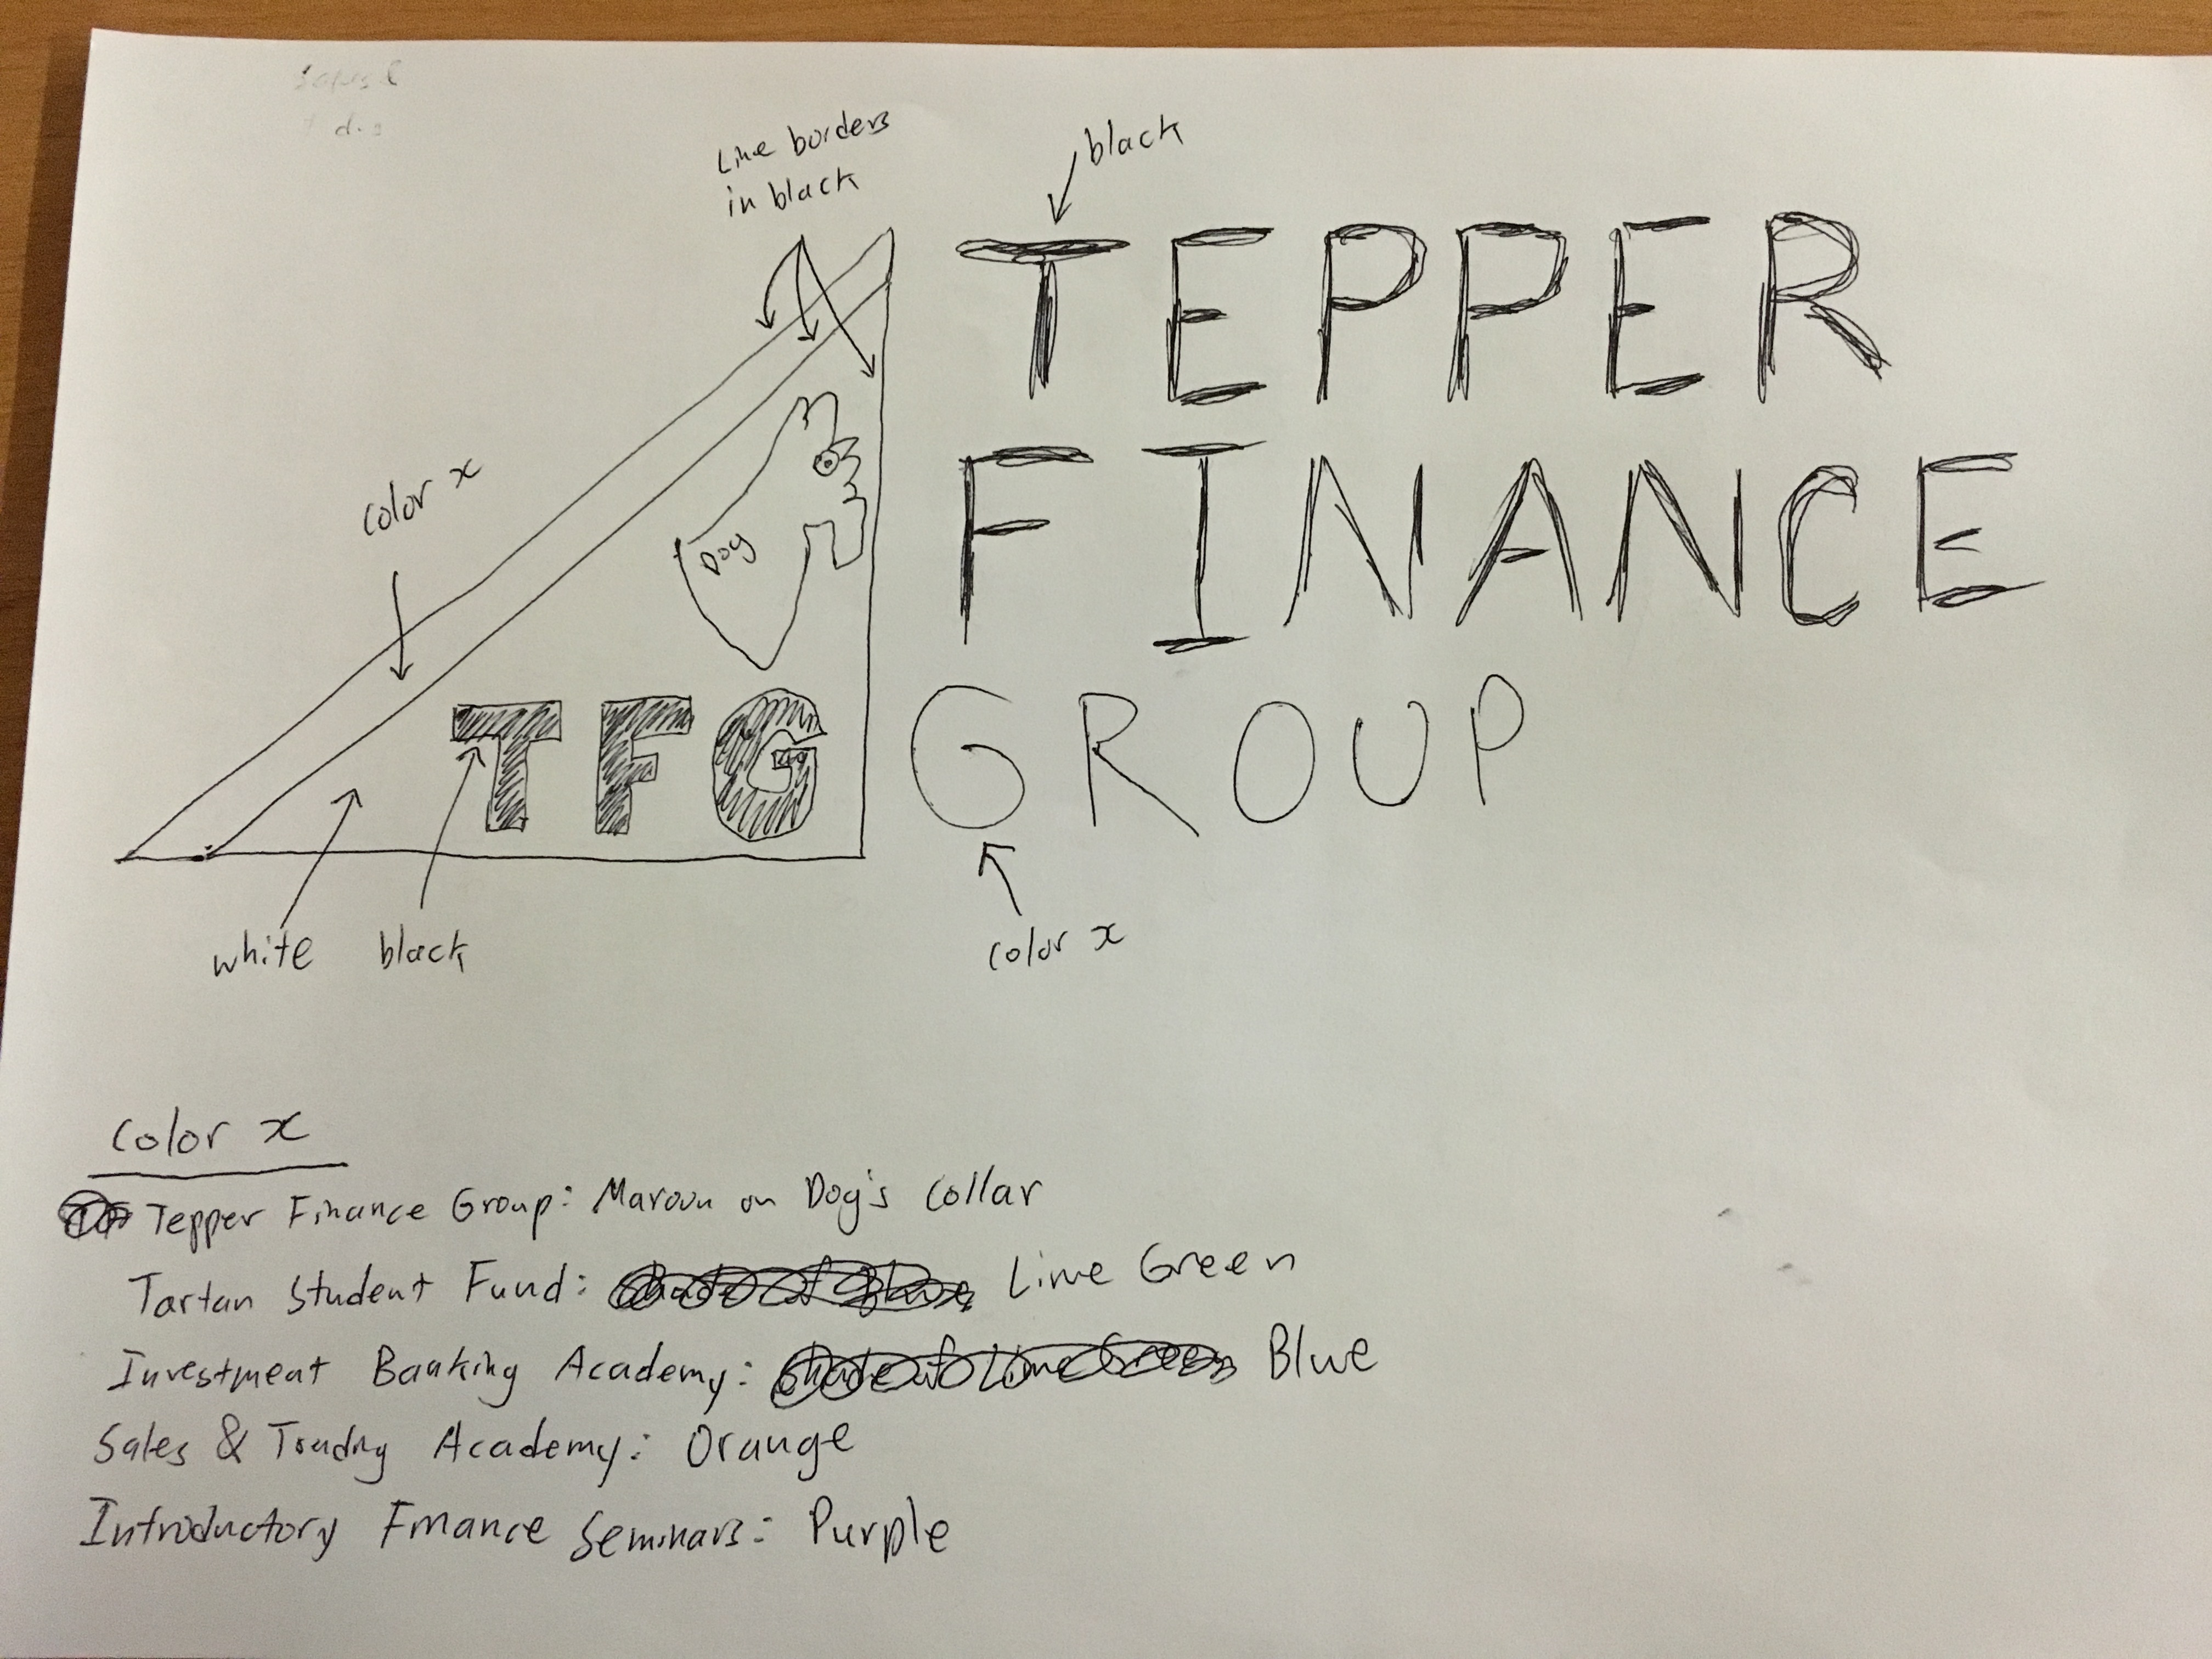 Line borders
in black
black
TEPPER
FINANCE
GROUP
color x
Dog
TFG
white
black
color x
Color x
Tepper Finance Group: Maroon on Dog's Collar
Tartan Student Fund: Lime Green
Investment Banking Academy: Blue
Sales & Trading Academy: Orange
Introductory Finance Seminars: Purple